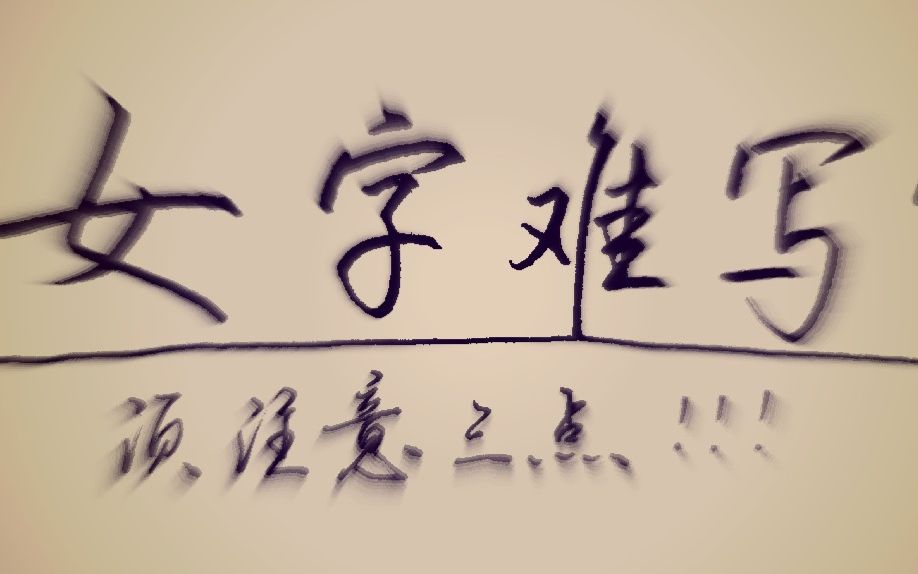 女字难写
须注意三点!!!